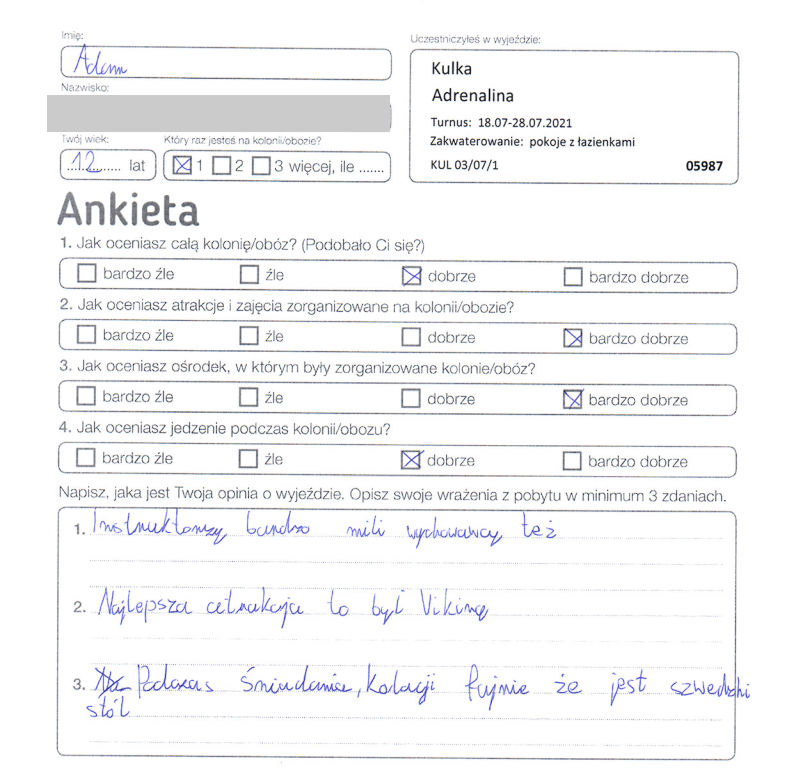 Imię:
Adam
Nazwisko:
Twój wiek:
12 lat
Który raz jesteś na kolonii/obozie?
1 2 3 więcej, ile .......
Uczestniczyłeś w wyjeździe:
Kulka
Adrenalina
Turnus: 18.07-28.07.2021
Zakwaterowanie: pokoje z łazienkami
KUL 03/07/1 05987
Ankieta
1. Jak oceniasz całą kolonię/obóz? (Podobało Ci się?)
bardzo źle źle dobrze bardzo dobrze
2. Jak oceniasz atrakcje i zajęcia zorganizowane na kolonii/obozie?
bardzo źle źle dobrze bardzo dobrze
3. Jak oceniasz ośrodek, w którym były zorganizowane kolonie/obóz?
bardzo źle źle dobrze bardzo dobrze
4. Jak oceniasz jedzenie podczas kolonii/obozu?
bardzo źle źle dobrze bardzo dobrze
Napisz, jaka jest Twoja opinia o wyjeździe. Opisz swoje wrażenia z pobytu w minimum 3 zdaniach.
1. Instruktorzy bardzo mili wychowawcy też
2. Najlepsza atrakcja to był Viking
3. Podczas śniadania, kolacji fajnie że jest szwedzki
stół